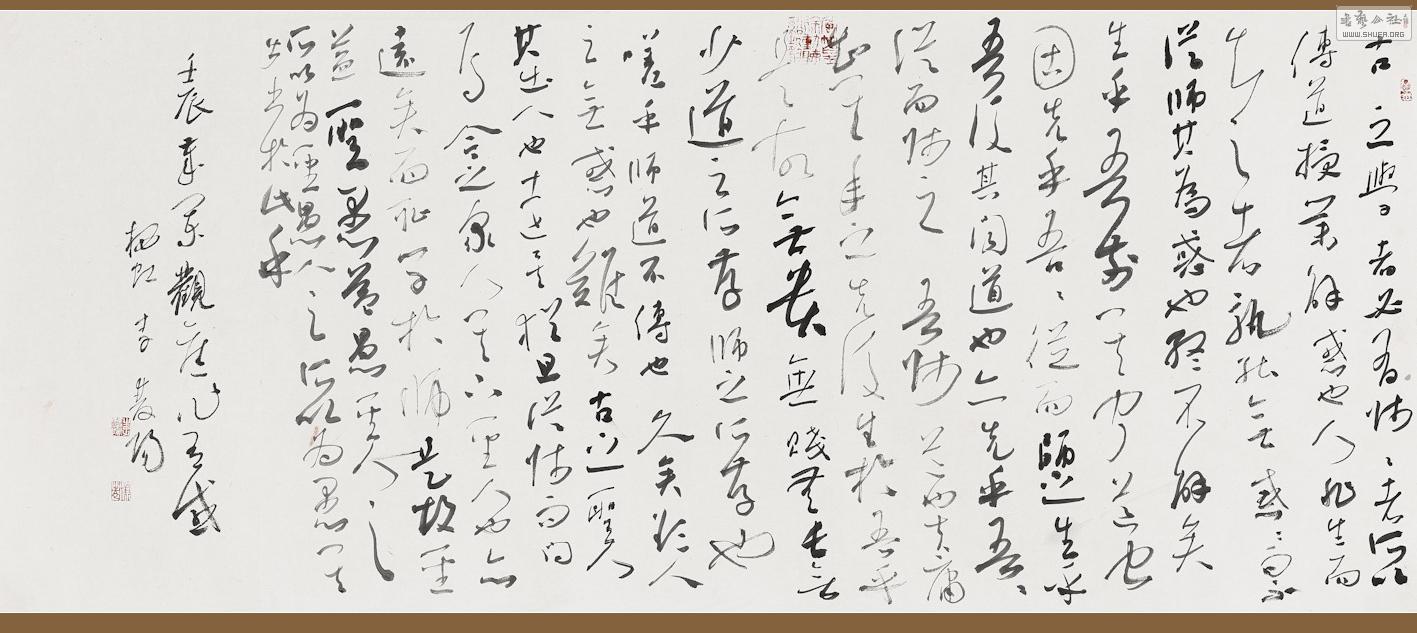 古之學者必有師〻者所以
傳道授業解惑也人非生而
知之者孰能無惑〻而不
從師其為惑也終不解矣
生乎吾前其聞道也
固先乎吾吾〻從而師之生乎
吾後其聞道也亦先乎吾〻
從而師之吾師道也夫庸
知其年之先後生於吾乎
是故無貴無賤無長無
少道之所存師之所存也
嗟乎師道不傳也久矣欲人
之無惑也難矣古之聖人
其出人也遠矣猶且從師而問
焉今之眾人其下聖人也亦
遠矣而恥學於師是故聖
益聖愚益愚聖人之
所以為聖愚人之所以為愚其
皆出於此乎
壬辰 觀
WWW.SHUER.ORG